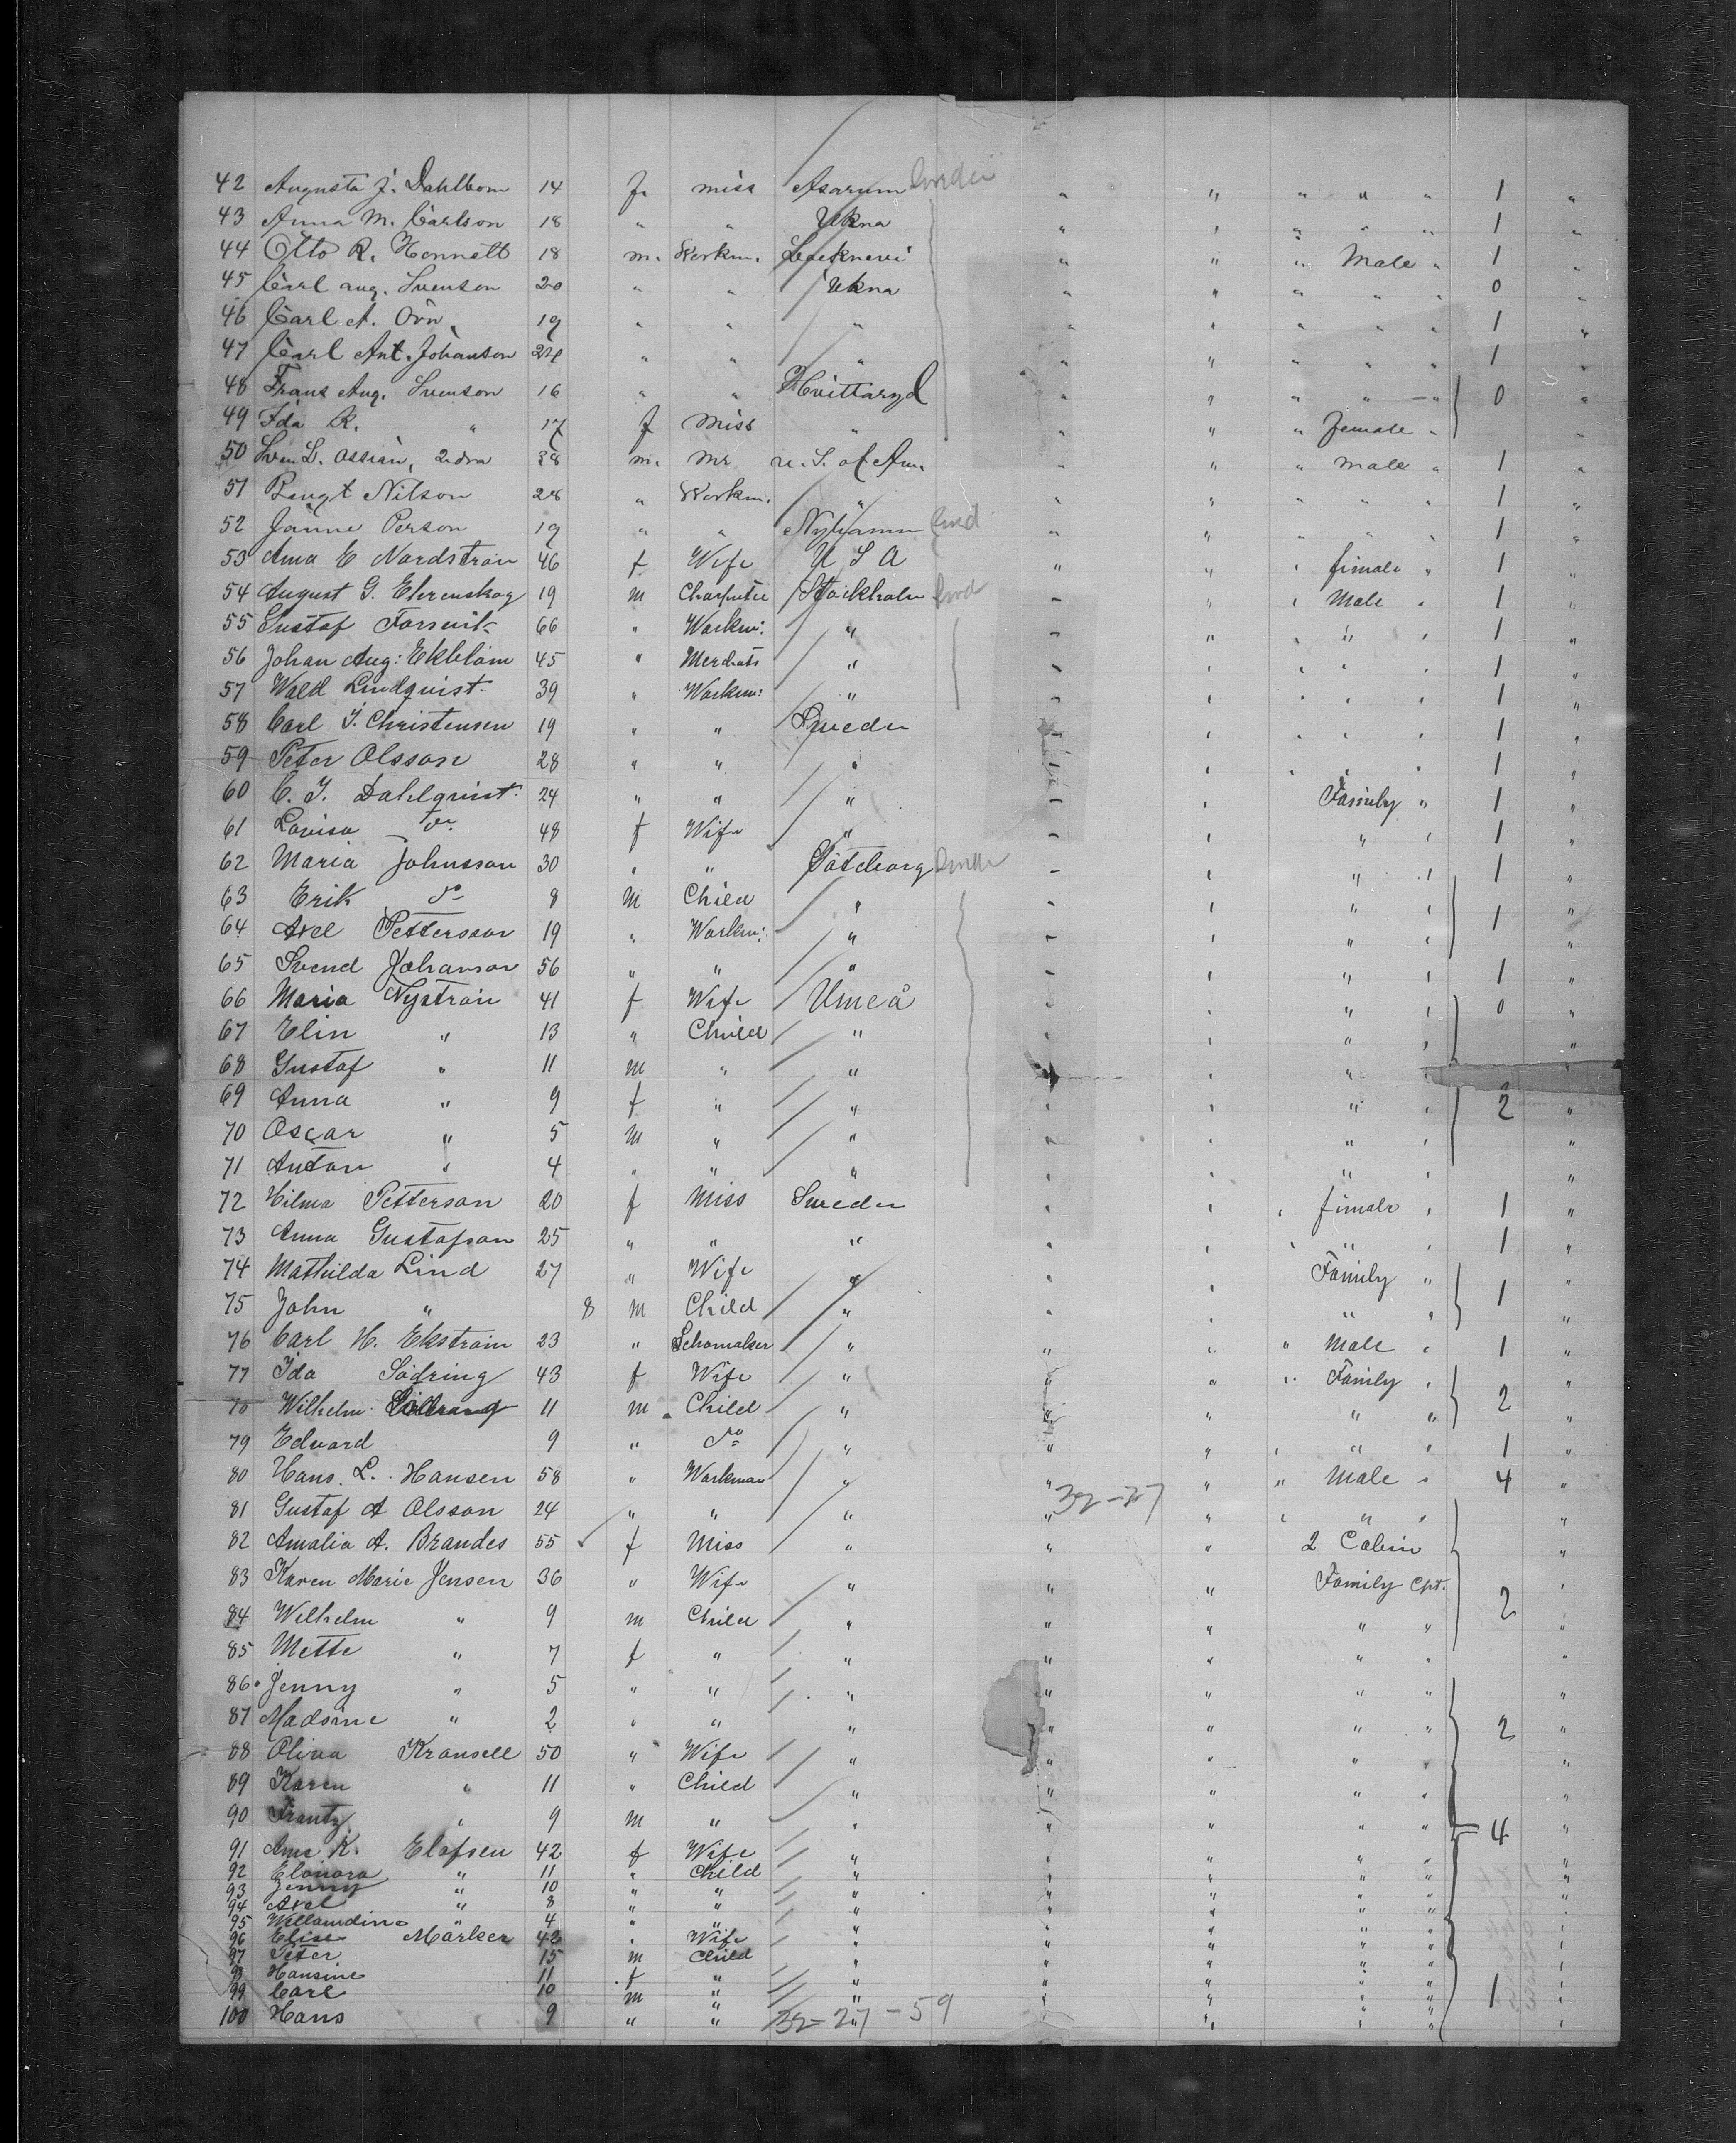 42 Augusta J. Dahlbom 14 f. miss Asarum Sweden " " " " " 1 "
43 Anna M. Carlson 18 " " Ukna " " " " " 1 "
44 Otto R. 18 m. Workm. " " " Male " 1 "
45 Carl Aug. Svenson 20 " " Ukna " " " " " 0 "
46 Carl A. Örn 19 " " " " " " " " 1 "
47 Carl Ant. Johanson 24 " " " " " " " " 1 "
48 Frans Aug. Svenson 16 " " Hvittaryd " " " " " 0 "
49 Ida K. " 17 f Miss " " " " Female " "
50 Sven L. 38 m. Mr U. S. of Am. " " " male " 1 "
51 Bengt Nilson 28 " Workm. " " " " " " 1 "
52 Janne Person 19 " " Nyhamn Swed " " " " " 1 "
53 Anna E Nordström 46 f Wife U S A " " " fimale " 1 "
54 August G. Ehrenskog 19 m Stockholm Swed " " " Male " 1 "
55 Gustaf 66 " Workm: " " " " " " 1 "
56 Johan Aug: Ekblom 45 " " " " " " " 1 "
57 Lindquist 39 " Workm: " " " " " " 1 "
58 Carl J. Christensen 19 " " Sweden " " " " 1 "
59 Peter Olsson 28 " " " " " " " " 1 "
60 C. J. Dahlquist 24 " " " " " Family " 1 "
61 Lovisa do 48 f Wife " " " " " 1 "
62 Maria Johnsson 30 " " Göteborg " " " " 1 "
63 Erik do 8 m Child " " " " " 1 "
64 Axel Pettersson 19 " Workm: " " " " " "
65 Svend Johanson 56 " " " " " " " 1 "
66 Maria Nyström 41 f Wife Umeå " " " " 0 "
67 Elin " 13 " Child " " " " " "
68 Gustaf " 11 m " " " " " "
69 Anna " 9 f " " " " " " 2 "
70 Oscar " 5 m " " " " " " "
71 Anton " 4 " " " " " " " "
72 Hilma Petterson 20 f Miss Sweden " " " fimale " 1 "
73 Anna Gustafson 25 " " " " " " " 1 "
74 Mathilda Lind 27 " Wife " " " Family " 1 "
75 John " 8 m Child " " " " " "
76 Carl H. Ekström 23 " Schomaker " " " " Male " 1 "
77 Ida Södring 43 f Wife " " " " Family " 2 "
78 Wilhelm 11 m Child " " " " " "
79 Edvard 9 " do " " " " " " 1 "
80 Hans L. Hansen 58 " Workman " " " " Male " 4 "
32-27
81 Gustaf A Olsson 24 " " " " " " " " "
82 Amalia A. Brandes 55 f Miss " " " 2 Cabin "
83 Karen Marie Jensen 36 " Wife " " " Family Cpt. 2 "
84 Wilhelm " 9 m Child " " " " " "
85 Mette " 7 f " " " " " " "
86 Jenny " 5 " " " " " " " "
87 Madsine " 2 " " " " " " " 2 "
88 Oliva Kransell 50 " Wife " " " " " "
89 Karen " 11 " Child " " " " " "
90 Frantz " 9 m " " " " " " 4 "
91 Ane K. Elofsen 42 f Wife " " " " " "
92 Elonora " 11 " Child " " " " " "
93 Jenny " 10 " " " " " " " "
94 Axel " 8 " " " " " " " "
95 " 4 " " " " " " " "
96 Elise Märker 42 " Wife " " " " " "
97 Peter 15 m Child " " " " " "
98 Hansine 11 f " " " " " " "
99 Carl 10 m " " " " " " 1 "
100 Hans 9 " " " " " " " "
32-27-59